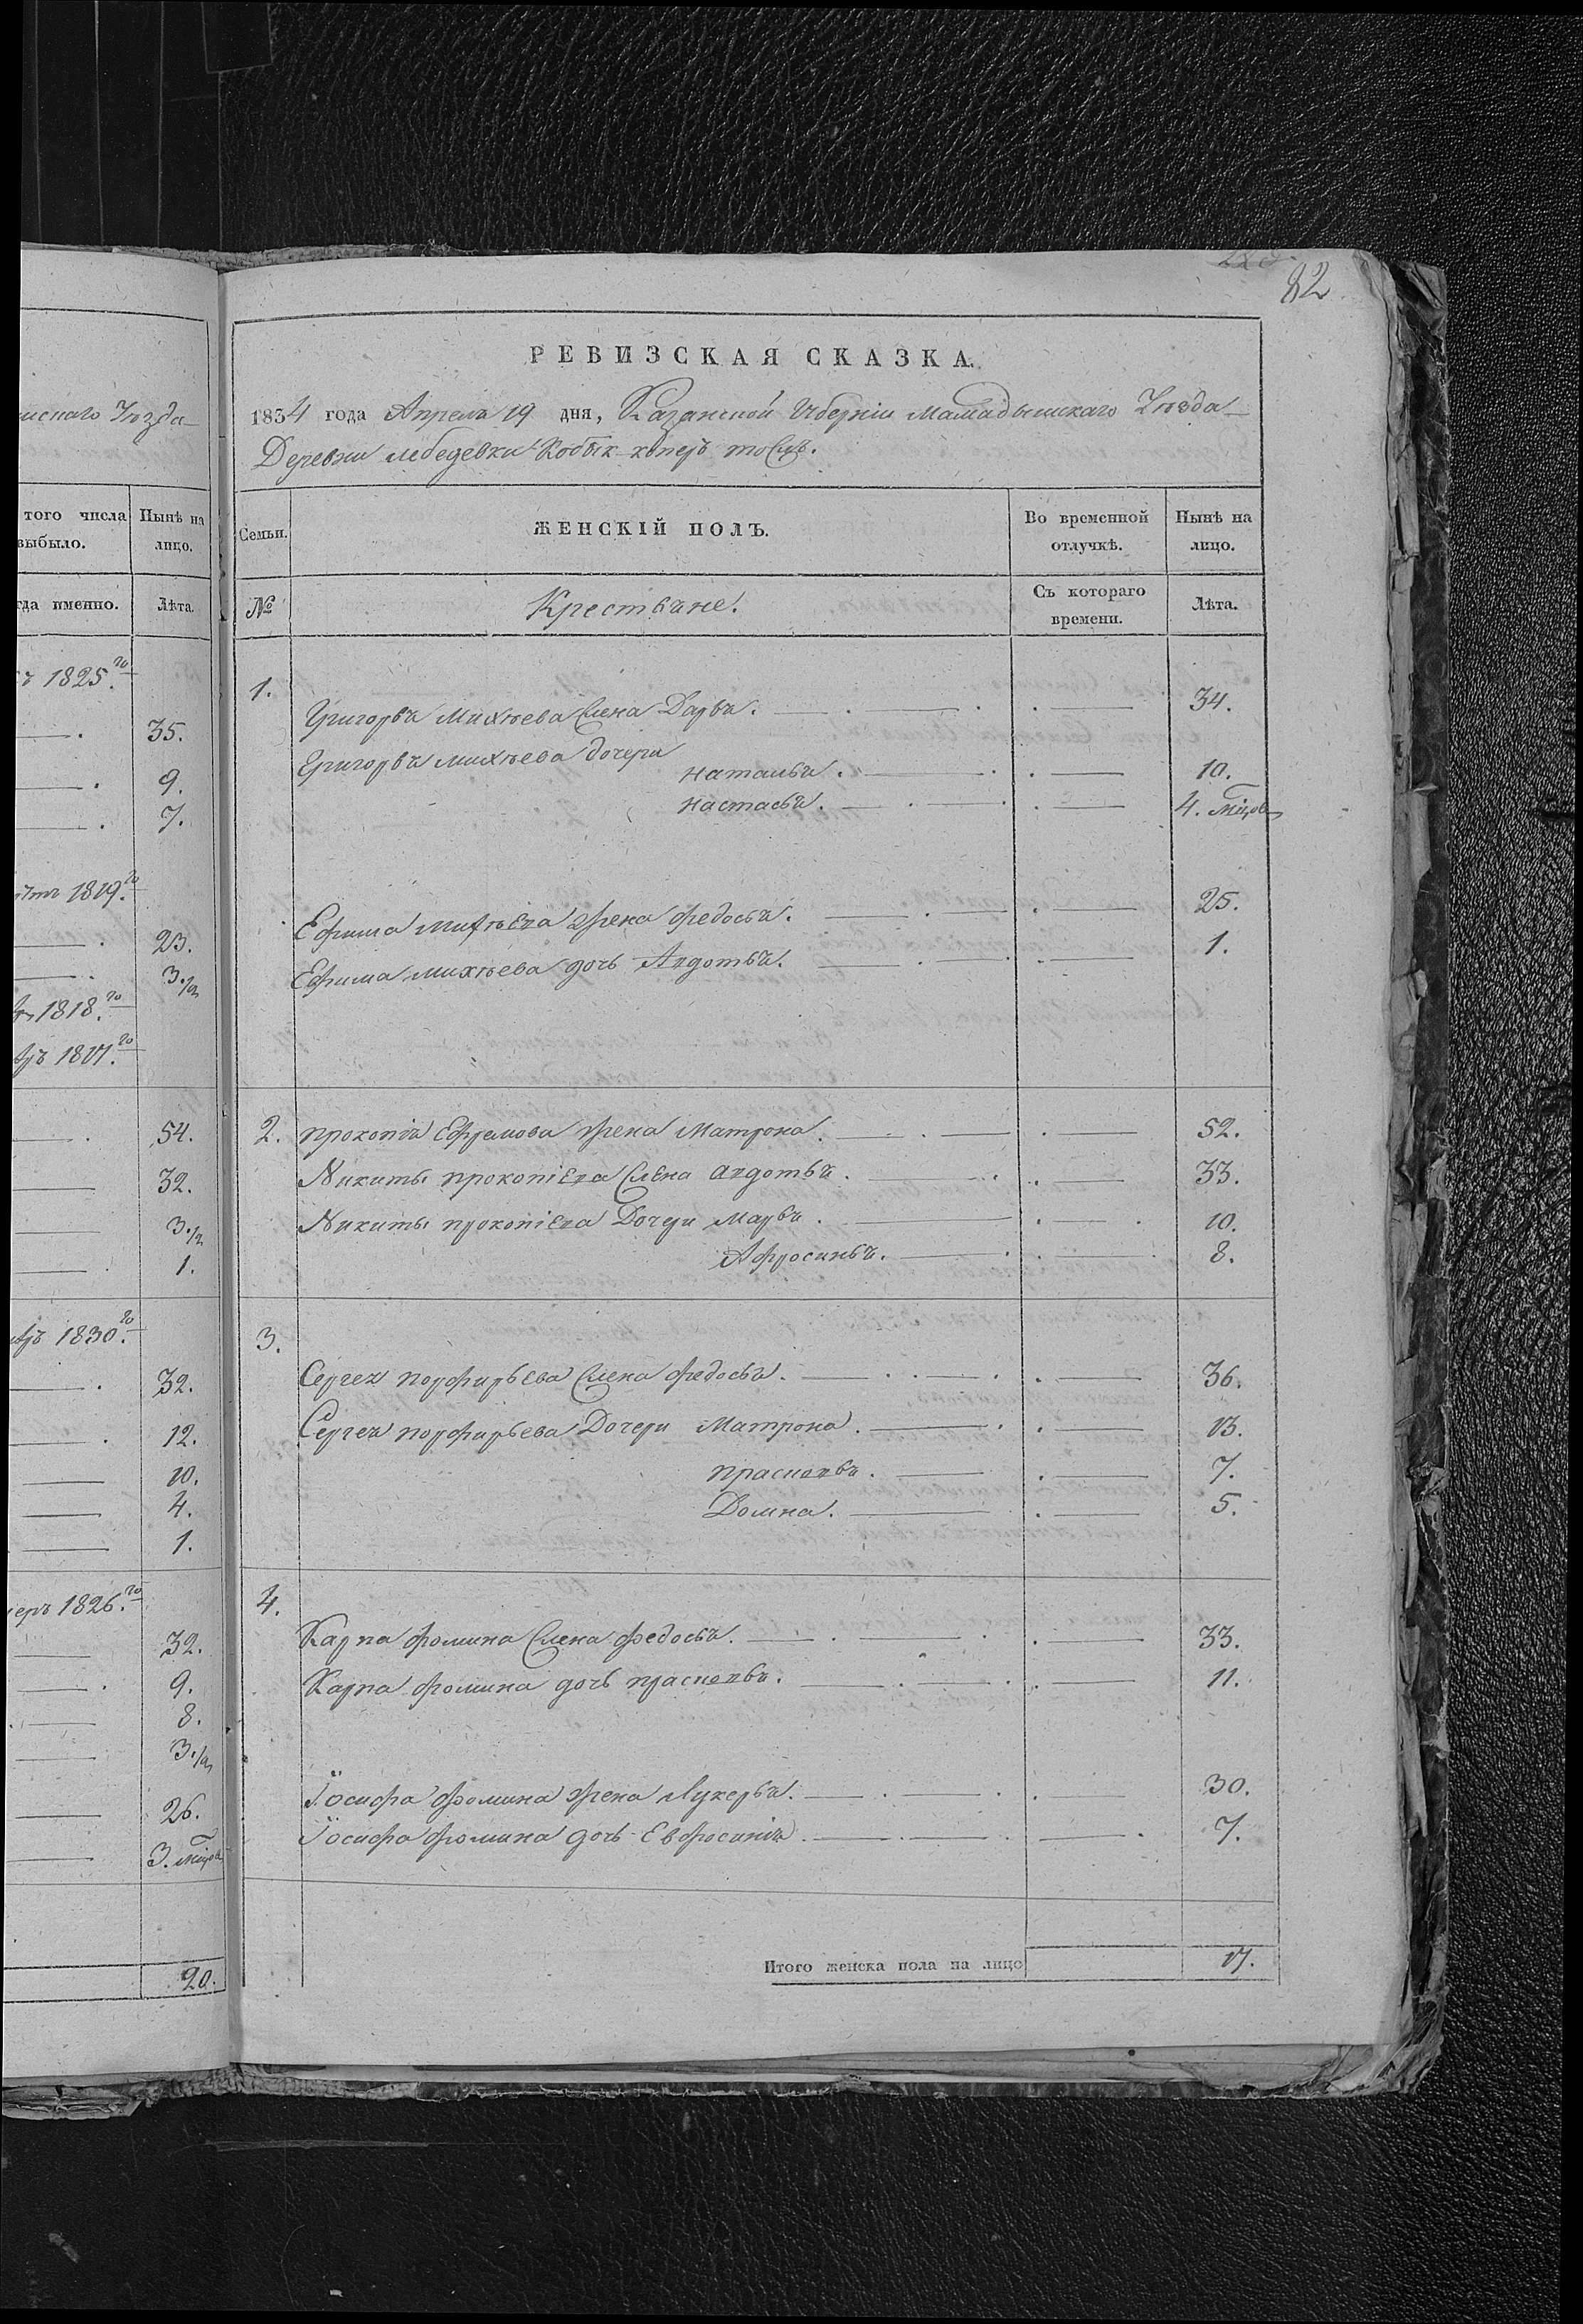 82
РЕВИЗСКАЯ СКАЗКА.
1834 года Апреля 19 дня, Казанской Губерніи Мамадышскаго Уезда
Деревни лебедевки Кобык коперъ тожъ.
Семьи.
ЖЕНСКІЙ ПОЛЪ.
Во временной отлучкѣ.
Нынѣ на лицо.
№
Крестьяне.
Съ котораго времени.
Лѣта.
1.
Григорья Михѣева жена Дарья. 34.
Григорья михѣева дочери
наталья. 10.
настасья. 4. мцов
Ефима михѣева жена федосья. 25.
Ефима михѣева дочь Авдотья. 1.
2. прокопія Ефремова жена Матрона. 52.
Никиты прокопіева жена авдотья. 33.
Никиты прокопіева Дочери Марья. 10.
Афросинья. 8.
3.
Сергея порфирьева жена федосья. 36.
Сергея порфирьева Дочери Матрона. 13.
прасковья. 7.
Домна. 5.
4.
Карпа фомина жена федосья. 33.
Карпа фомина дочь прасковья. 11.
Іосифа фомина жена Лукерья. 30.
Іосифа фомина дочь Евфросинія. 7.
Итого женска пола на лицо 17.
того числа
выбыло.
Нынѣ на
лицо.
именно.
Лѣта.
1825.го
35.
9.
7.
1819.го
23.
3.1/2
1818.го
1817.го
54.
32.
3.1/2
1.
1830.го
32.
12.
10.
4.
1.
1826.го
32.
9.
8.
3.1/2
26.
3. мцов
20.